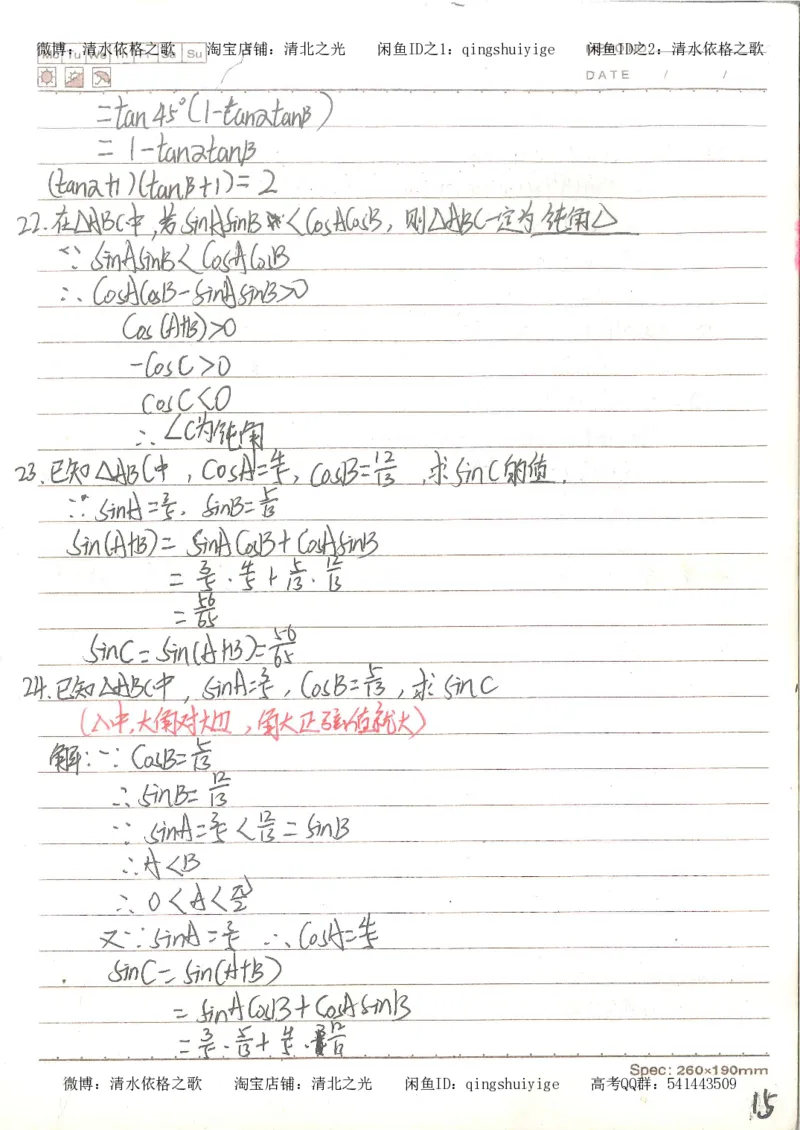 微博：清水依格之歌 淘宝店铺：清北之光 闲鱼ID之1：qingshuiyige 闲鱼ID之2：清水依格之歌
DATE / /
=tan45°(1-tanαtanβ)
= 1-tanαtanβ
(tanα+1)(tanβ+1)=2
22.在△ABC中,若sinAsinB<cosAcosB,则△ABC一定为钝角△
∵ sinAsinB<cosAcosB
∴ cosAcosB-sinAsinB>0
cos(A+B)>0
-cosC>0
cosC<0
∴ ∠C为钝角
23.已知△ABC中,cosA=4/5,cosB=12/13,求sinC的值.
∵ sinA=3/5,sinB=5/13
sin(A+B)=sinAcosB+cosAsinB
=3/5·4/5+5/13·12/13
=56/65
sinC=sin(A+B)=56/65
24.已知△ABC中,sinA=3/5,cosB=5/13,求sinC
(△中,大角对大边,角大正弦值就大)
解:∵ cosB=5/13
∴ sinB=12/13
∵ sinA=3/5<12/13=sinB
∴A<B
∴ 0<A<π/2
又∵ sinA=3/5 ∴ cosA=4/5
sinC=sin(A+B)
=sinAcosB+cosAsinB
=3/5·5/13+4/5·12/13
Spec: 260×190mm
微博：清水依格之歌 淘宝店铺：清北之光 闲鱼ID：qingshuiyige 高考QQ群：541443509
15